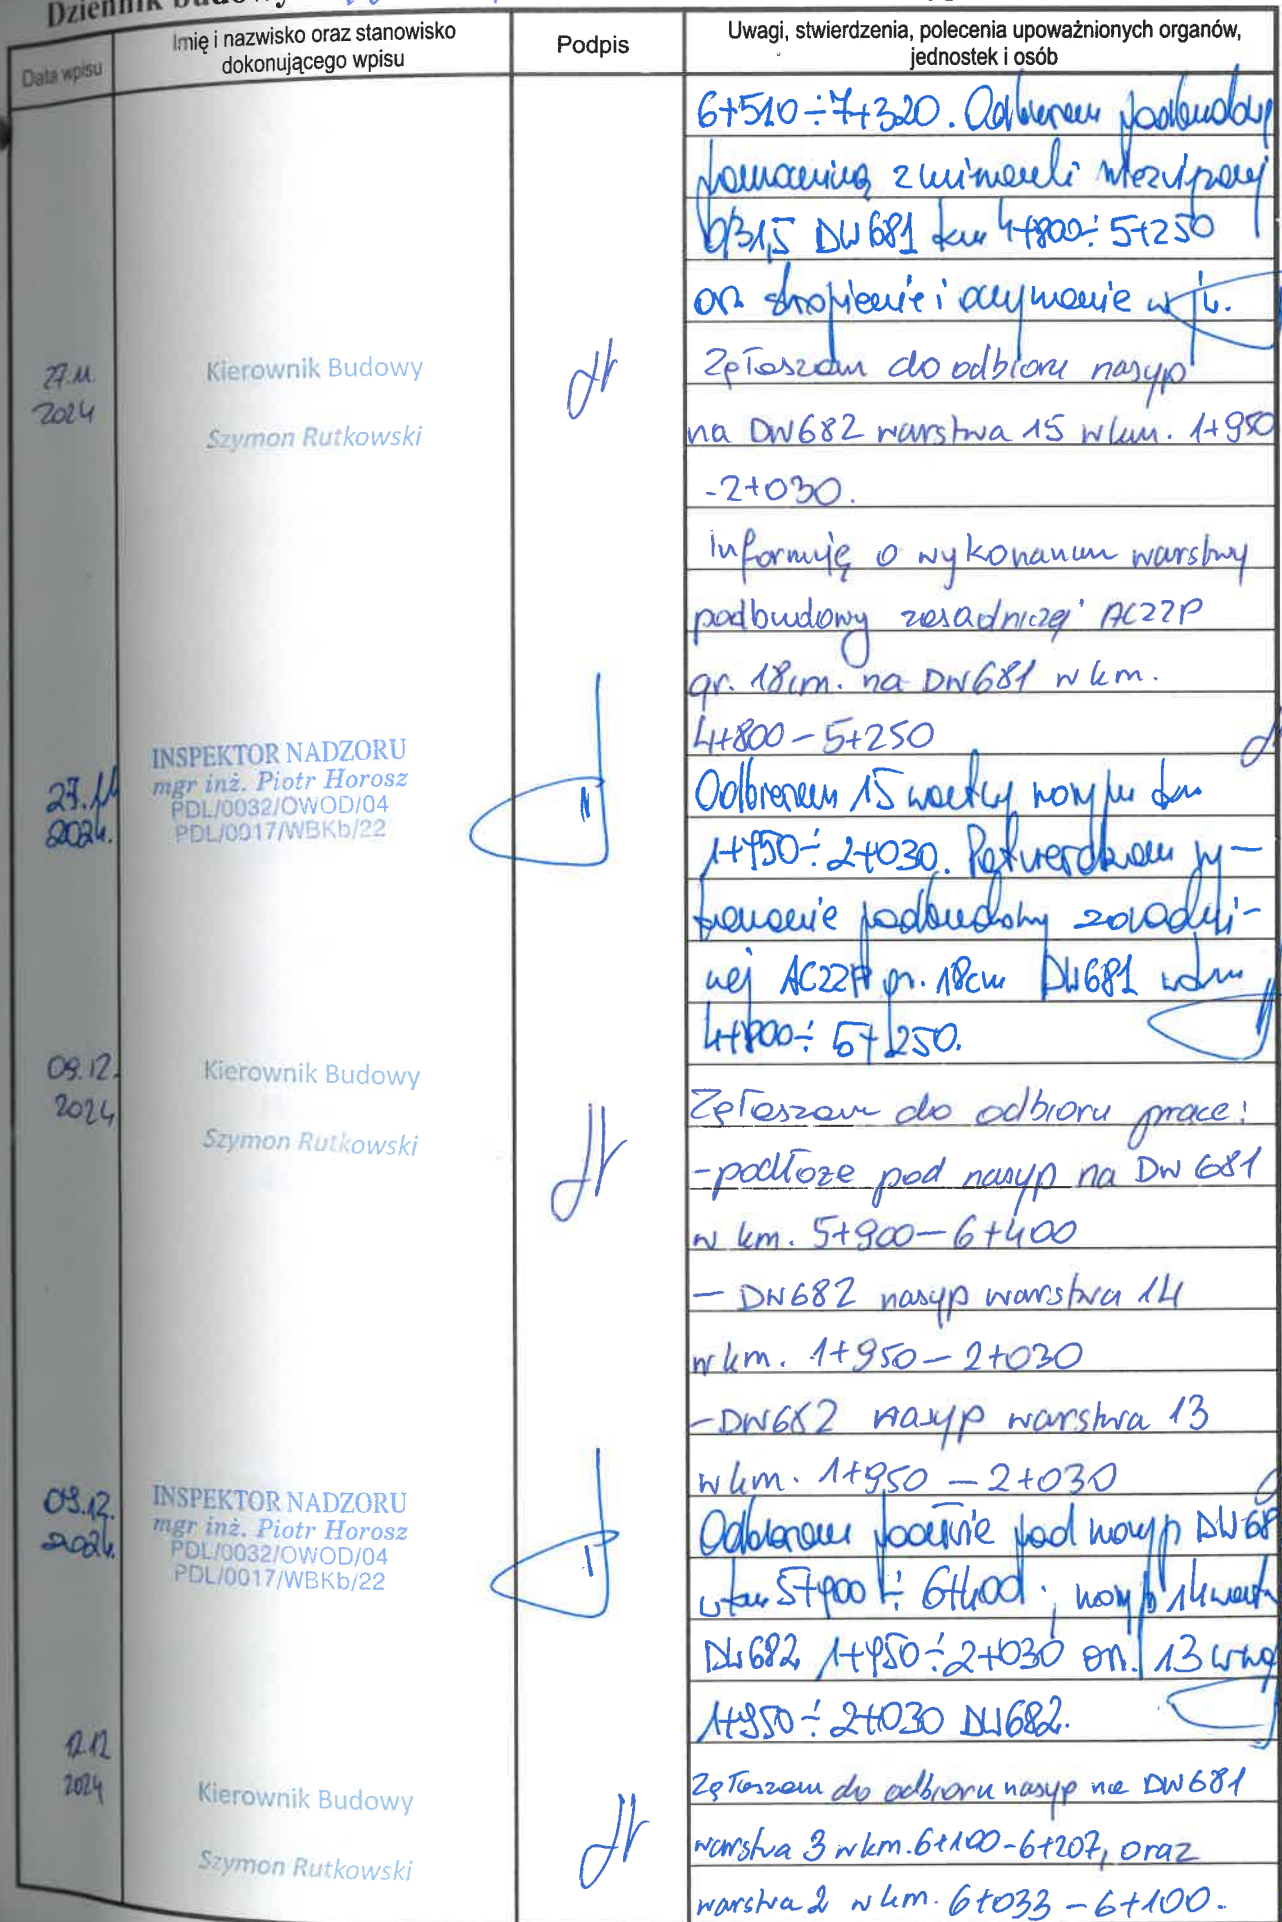 Dziennik Budowy
Data wpisu
Imię i nazwisko oraz stanowisko
dokonującego wpisu
Podpis
Uwagi, stwierdzenia, polecenia upoważnionych organów,
jednostek i osób
6+510÷7+320. Odbieram podbudowę
pomocniczą z
0/31,5 DW681 km 4+800÷5+250
oraz skropienie i
27.11.
2024
Kierownik Budowy
Szymon Rutkowski
Zgłaszam do odbioru nasyp
na DW682 warstwa 15 w km. 1+950
-2+030.
Informuję o wykonaniu warstwy
podbudowy zasadniczej AC22P
gr. 18cm. na DW681 w km.
4+800-5+250
27.11
2024.
INSPEKTOR NADZORU
mgr inż. Piotr Horosz
PDL/0032/OWOD/04
PDL/0017/WBKb/22
Odbieram 15 warstwę nasypu km
1+950÷2+030. Potwierdzam wy-
konanie podbudowy zasadni-
czej AC22P gr. 18cm DW681 w km
4+800÷5+250.
09.12.
2024
Kierownik Budowy
Szymon Rutkowski
Zgłaszam do odbioru prace:
-podłoże pod nasyp na DW 681
w km. 5+900-6+400
- DW682 nasyp warstwa 14
w km. 1+950-2+030
-DW682 nasyp warstwa 13
w km. 1+950-2+030
09.12.
2024.
INSPEKTOR NADZORU
mgr inż. Piotr Horosz
PDL/0032/OWOD/04
PDL/0017/WBKb/22
Odbieram podłoże pod nasyp DW68
w km 5+900÷6+400; nasyp 14
DW682 1+950÷2+030 oraz 13
1+950÷2+030 DW682.
12.12
2024
Kierownik Budowy
Szymon Rutkowski
Zgłaszam do odbioru nasyp na DW681
warstwa 3 w km. 6+100-6+207, oraz
warstwa 2 w km. 6+033-6+100.